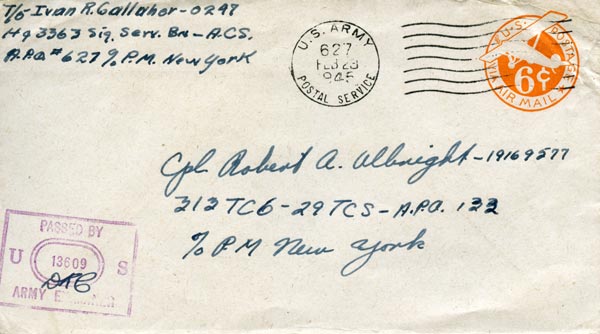 T/5 Ivan R. Gallaher - 0297
Hq 3363 Sig. Serv. Bn - A.C.S.
A.P.O. #627 % P.M. New York
U.S. ARMY
627
FEB 23
1945
POSTAL SERVICE
U.S. POSTAGE
6¢
VIA AIR MAIL
Cpl. Robert A. Albright - 19169577
313 TCG - 29 TCS - A.P.O. 133
% P.M. New York
PASSED BY
U 13609 S
ARMY EXAMINER